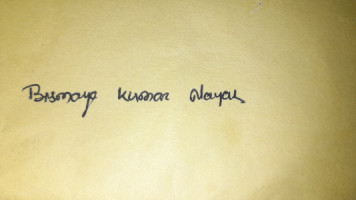 Bismaya Kumar Nayak